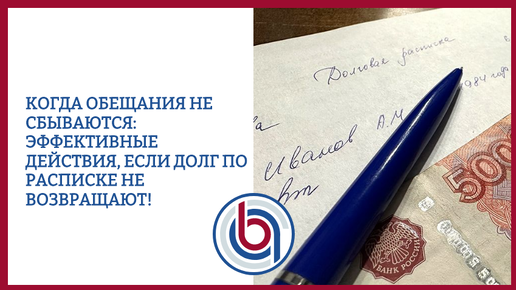 КОГДА ОБЕЩАНИЯ НЕ
СБЫВАЮТСЯ:
ЭФФЕКТИВНЫЕ
ДЕЙСТВИЯ, ЕСЛИ ДОЛГ ПО
РАСПИСКЕ НЕ
ВОЗВРАЩАЮТ!
Долговая расписка
года
Иванов А.М
500
БАНК РОССИИ